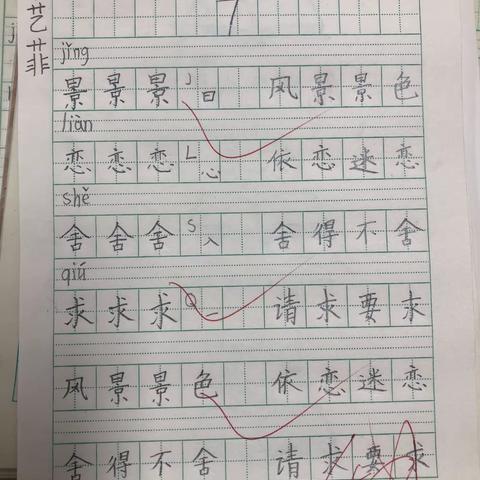 艺菲
7
jǐng
景景景 J 日 风景景色
liàn
恋恋恋 L 心 依恋迷恋
shě
舍舍舍 S 人 舍得不舍
qiú
求求求 Q 一 请求要求
风景景色 依恋迷恋
舍得不舍 请求要求